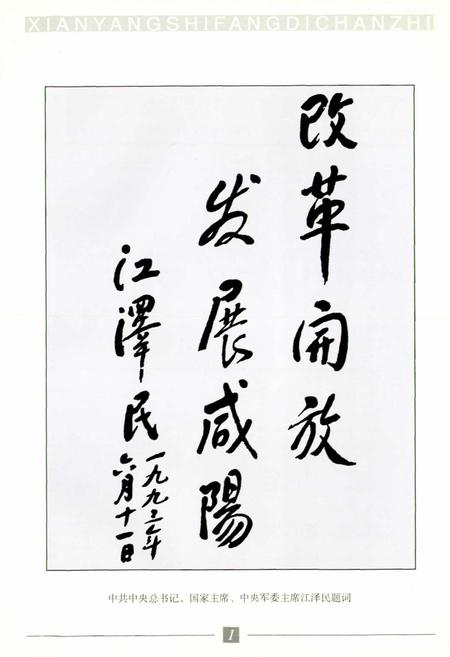 XIANYANGSHIFANGDICHANZHI
改革開放
发展咸陽
江澤民
一九九三年
六月十一日
中共中央总书记、国家主席、中央军委主席江泽民题词
1